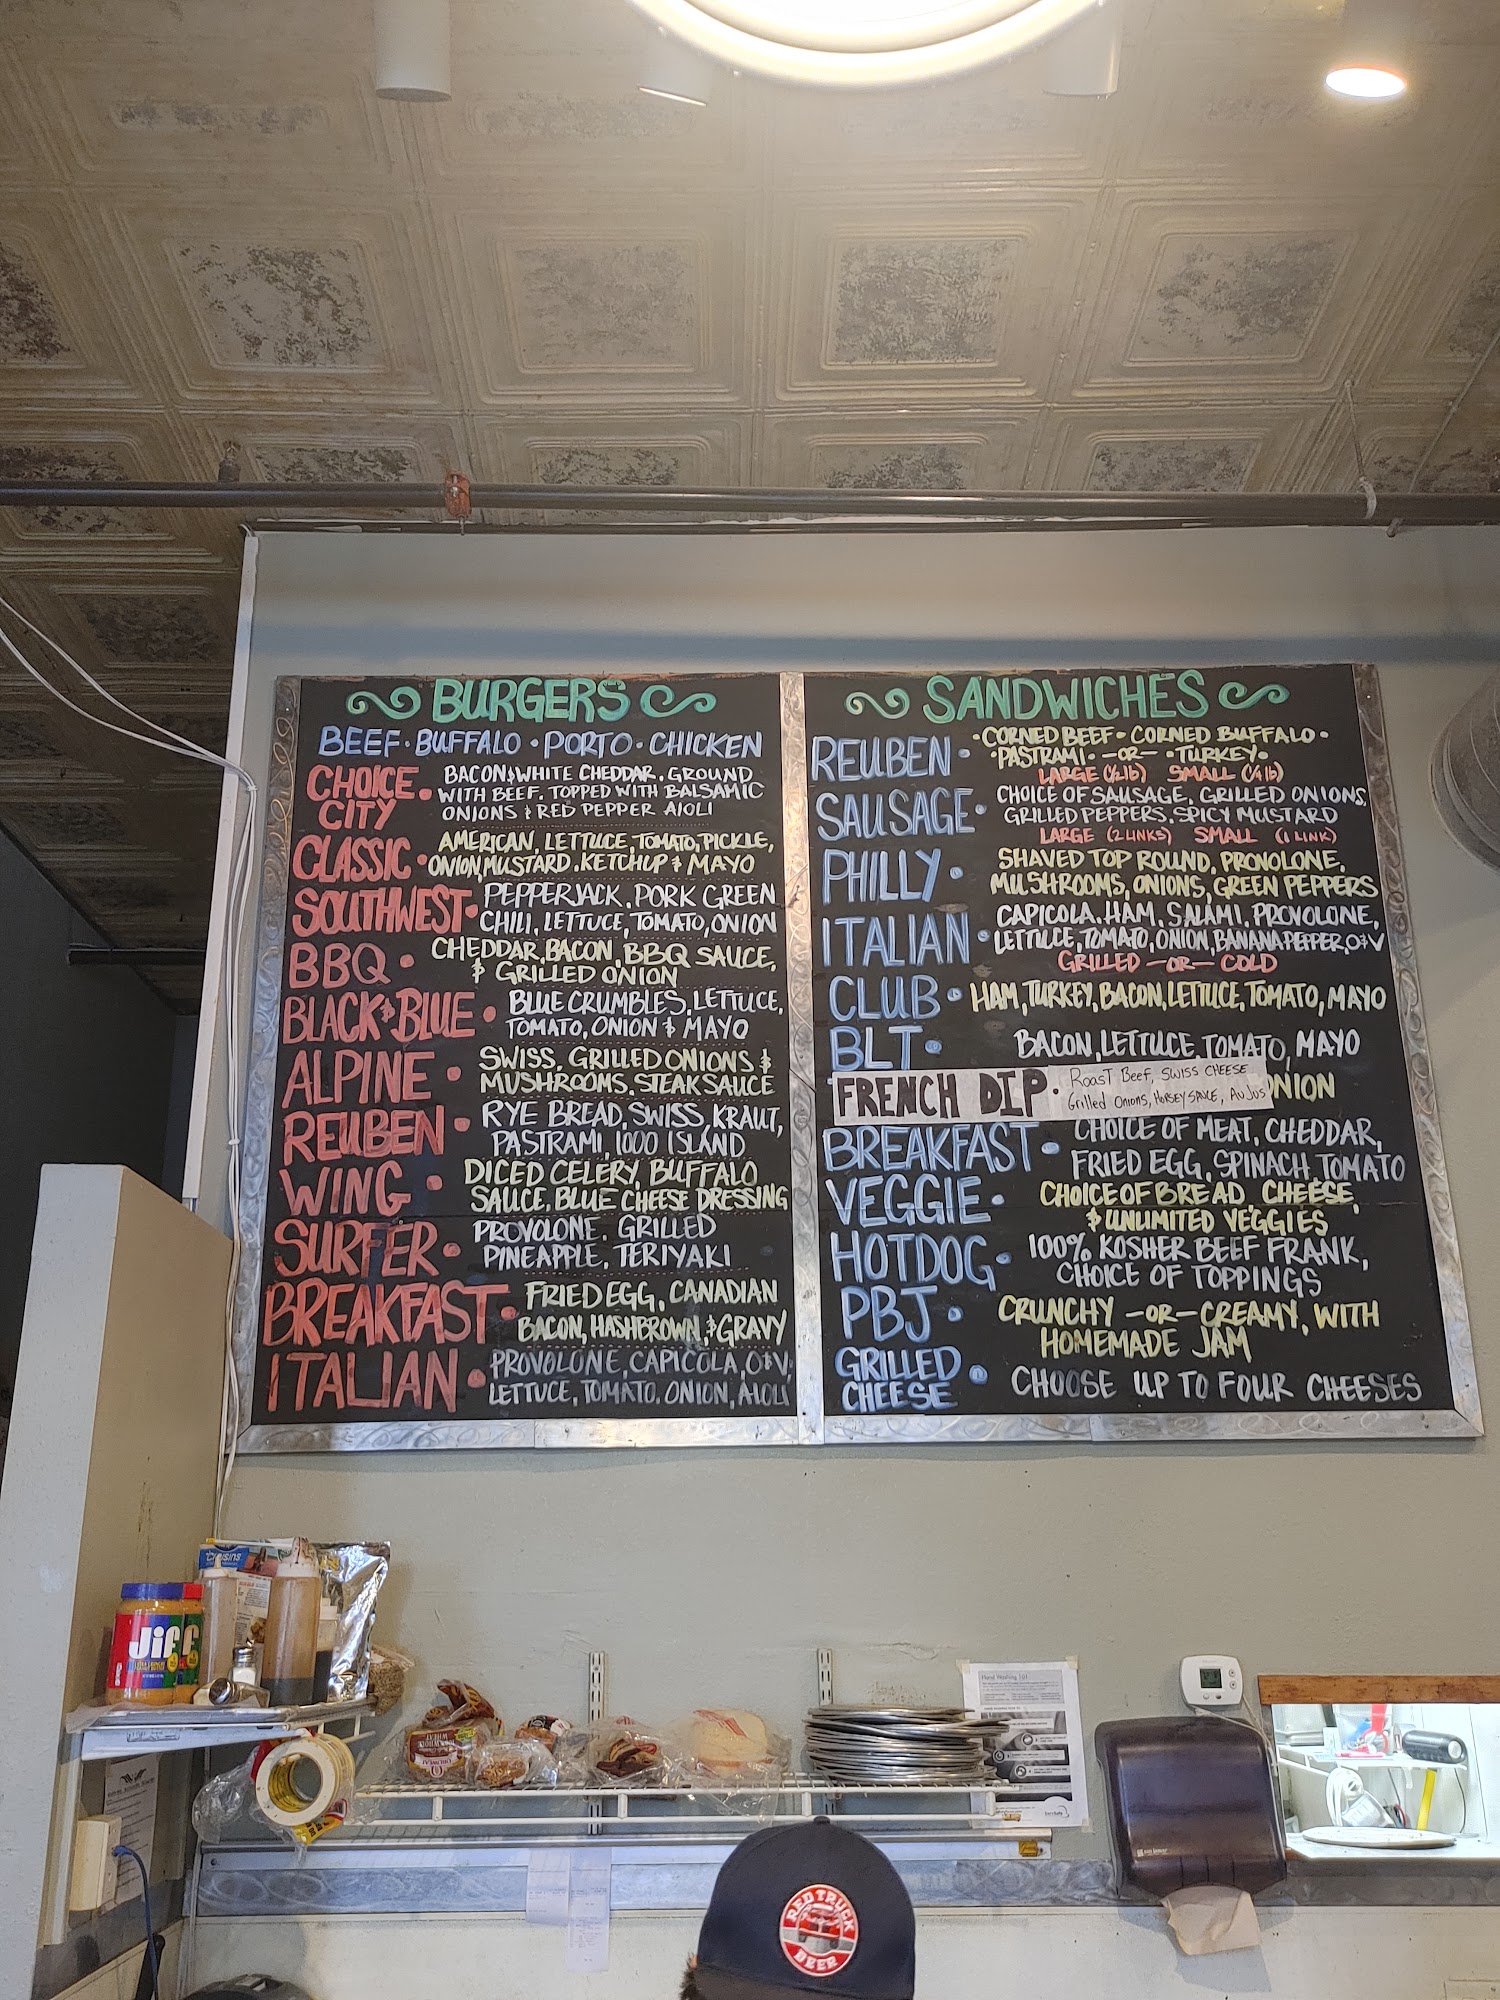 BURGERS
BEEF · BUFFALO · PORTO · CHICKEN
CHOICE CITY · BACON & WHITE CHEDDAR. GROUND
WITH BEEF. TOPPED WITH BALSAMIC
ONIONS & RED PEPPER AIOLI
CLASSIC · AMERICAN, LETTUCE, TOMATO, PICKLE,
ONION, MUSTARD, KETCHUP & MAYO
SOUTHWEST · PEPPERJACK, PORK GREEN
CHILI, LETTUCE, TOMATO, ONION
BBQ · CHEDDAR, BACON, BBQ SAUCE,
& GRILLED ONION
BLACK & BLUE · BLUE CRUMBLES, LETTUCE,
TOMATO, ONION & MAYO
ALPINE · SWISS, GRILLED ONIONS &
MUSHROOMS, STEAK SAUCE
REUBEN · RYE BREAD, SWISS, KRAUT,
PASTRAMI, 1000 ISLAND
WING · DICED CELERY, BUFFALO
SAUCE, BLUE CHEESE DRESSING
SURFER · PROVOLONE, GRILLED
PINEAPPLE, TERIYAKI
BREAKFAST · FRIED EGG, CANADIAN
BACON, HASHBROWN, & GRAVY
ITALIAN · PROVOLONE, CAPICOLA, O&V,
LETTUCE, TOMATO, ONION, AIOLI
SANDWICHES
REUBEN · · CORNED BEEF · CORNED BUFFALO ·
· PASTRAMI -OR- · TURKEY ·
LARGE (1/2 lb) SMALL (1/4 lb)
SAUSAGE · CHOICE OF SAUSAGE, GRILLED ONIONS,
GRILLED PEPPERS, SPICY MUSTARD
LARGE (2 LINKS) SMALL (1 LINK)
PHILLY · SHAVED TOP ROUND, PRONOLONE,
MUSHROOMS, ONIONS, GREEN PEPPERS
ITALIAN · CAPICOLA, HAM, SALAMI, PROVOLONE,
LETTUCE, TOMATO, ONION, BANANA PEPPER, O&V
GRILLED -OR- COLD
CLUB · HAM, TURKEY, BACON, LETTUCE, TOMATO, MAYO
BLT · BACON, LETTUCE, TOMATO, MAYO
FRENCH DIP · Roast Beef, Swiss Cheese
Grilled Onions, Horsey Sauce, Au Jus
ONION
BREAKFAST · CHOICE OF MEAT, CHEDDAR,
FRIED EGG, SPINACH, TOMATO
VEGGIE · CHOICE OF BREAD, CHEESE,
& UNLIMITED VEGGIES
HOTDOG · 100% KOSHER BEEF FRANK,
CHOICE OF TOPPINGS
PBJ · CRUNCHY -OR- CREAMY, WITH
HOMEMADE JAM
GRILLED CHEESE · CHOOSE UP TO FOUR CHEESES
Jif
Hand Washing 101
WHEAT
RED TRUCK
BEER